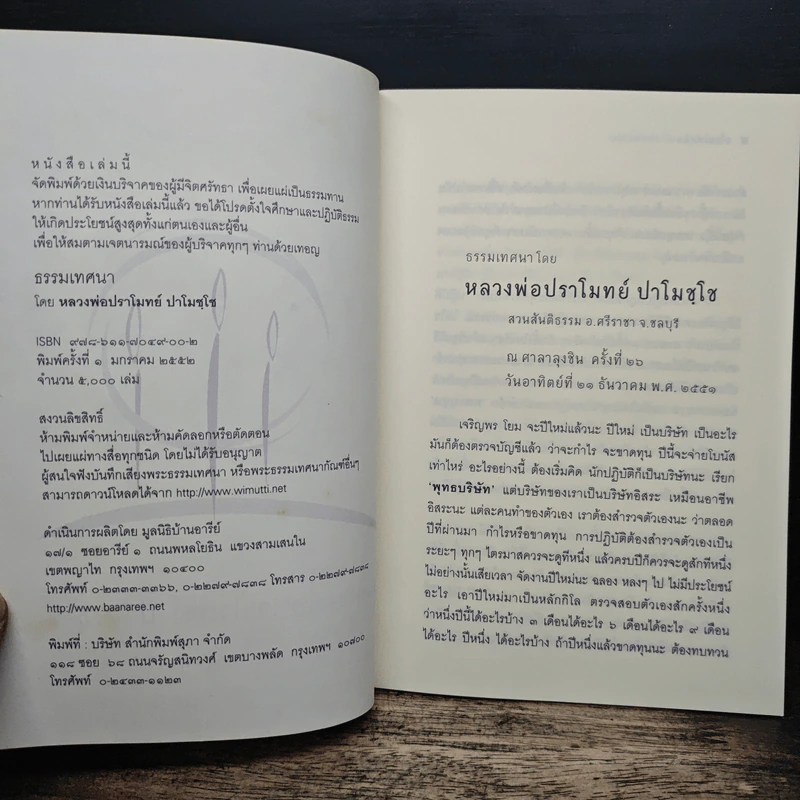 หนังสือเล่มนี้
จัดพิมพ์ด้วยเงินบริจาคของผู้มีจิตศรัทธา เพื่อเผยแผ่เป็นธรรมทาน
หากท่านได้รับหนังสือเล่มนี้แล้ว ขอได้โปรดตั้งใจศึกษาและปฏิบัติธรรม
ให้เกิดประโยชน์สูงสุดทั้งแก่ตนเองและผู้อื่น
เพื่อให้สมตามเจตนารมณ์ของผู้บริจาคทุกๆ ท่านด้วยเทอญ
ธรรมเทศนา
โดย หลวงพ่อปราโมทย์ ปาโมชฺโช
ISBN ๙๗๘-๖๑๑-๗๐๔๙-๐๐-๒
พิมพ์ครั้งที่ ๑ มกราคม ๒๕๕๒
จำนวน ๕,๐๐๐ เล่ม
สงวนลิขสิทธิ์
ห้ามพิมพ์จำหน่ายและห้ามคัดลอกหรือตัดตอน
ไปเผยแผ่ทางสื่อทุกชนิด โดยไม่ได้รับอนุญาต
ผู้สนใจฟังบันทึกเสียงพระธรรมเทศนา หรือพระธรรมเทศนากัณฑ์อื่นๆ
สามารถดาวน์โหลดได้จาก http://www.wimutti.net
ดำเนินการผลิตโดย มูลนิธิบ้านอารีย์
๑๗/๑ ซอยอารีย์ ๑ ถนนพหลโยธิน แขวงสามเสนใน
เขตพญาไท กรุงเทพฯ ๑๐๔๐๐
โทรศัพท์ ๐-๒๓๓๓-๓๓๖๖, ๐-๒๒๗๙-๗๘๓๘ โทรสาร ๐-๒๒๗๙-๗๘๓๘
http://www.baanaree.net
พิมพ์ที่ : บริษัท สำนักพิมพ์สุภา จำกัด
๑๑๘ ซอย ๖๘ ถนนจรัญสนิทวงศ์ เขตบางพลัด กรุงเทพฯ ๑๐๗๐๐
โทรศัพท์ ๐-๒๔๓๓-๑๑๒๓
ธรรมเทศนาโดย
หลวงพ่อปราโมทย์ ปาโมชฺโช
สวนสันติธรรม อ.ศรีราชา จ.ชลบุรี
ณ ศาลาลุงชิน ครั้งที่ ๒๖
วันอาทิตย์ที่ ๒๑ ธันวาคม พ.ศ. ๒๕๕๑
เจริญพร โยม จะปีใหม่แล้วนะ ปีใหม่ เป็นบริษัท เป็นอะไร
มันก็ต้องตรวจบัญชีแล้ว ว่าจะกำไร จะขาดทุน ปีนี้จะจ่ายโบนัส
เท่าไหร่ อะไรอย่างนี้ ต้องเริ่มคิด นักปฏิบัติก็เป็นบริษัทนะ เรียก
'พุทธบริษัท' แต่บริษัทของเราเป็นบริษัทอิสระ เหมือนอาชีพ
อิสระนะ แต่ละคนทำของตัวเอง เราต้องสำรวจตัวเองนะ ว่าตลอด
ปีที่ผ่านมา กำไรหรือขาดทุน การปฏิบัติต้องสำรวจตัวเองเป็น
ระยะๆ ทุกๆ ไตรมาสควรจะดูทีหนึ่ง แล้วครบปีก็ควรจะดูสักทีหนึ่ง
ไม่อย่างนั้นเสียเวลา จัดงานปีใหม่นะ ฉลอง หลงๆ ไป ไม่มีประโยชน์
อะไร เอาปีใหม่มาเป็นหลักกิโล ตรวจสอบตัวเองสักครั้งหนึ่ง
ว่าหนึ่งปีนี้ได้อะไรบ้าง ๓ เดือนได้อะไร ๖ เดือนได้อะไร ๙ เดือน
ได้อะไร ปีหนึ่ง ได้อะไรบ้าง ถ้าปีหนึ่งแล้วขาดทุนนะ ต้องทบทวน